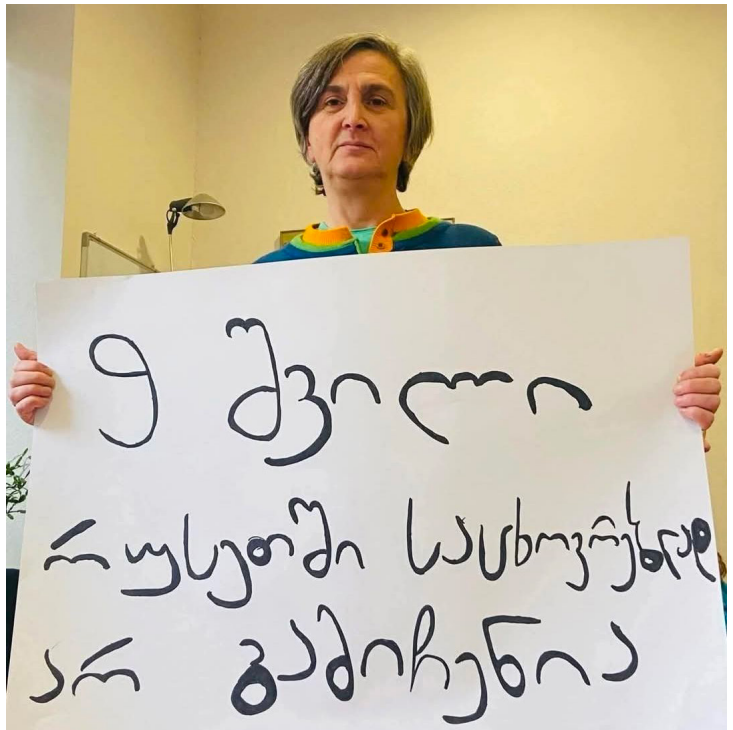 9 შვილი
რუსეთში საცხოვრებლად
არ გამიჩენია